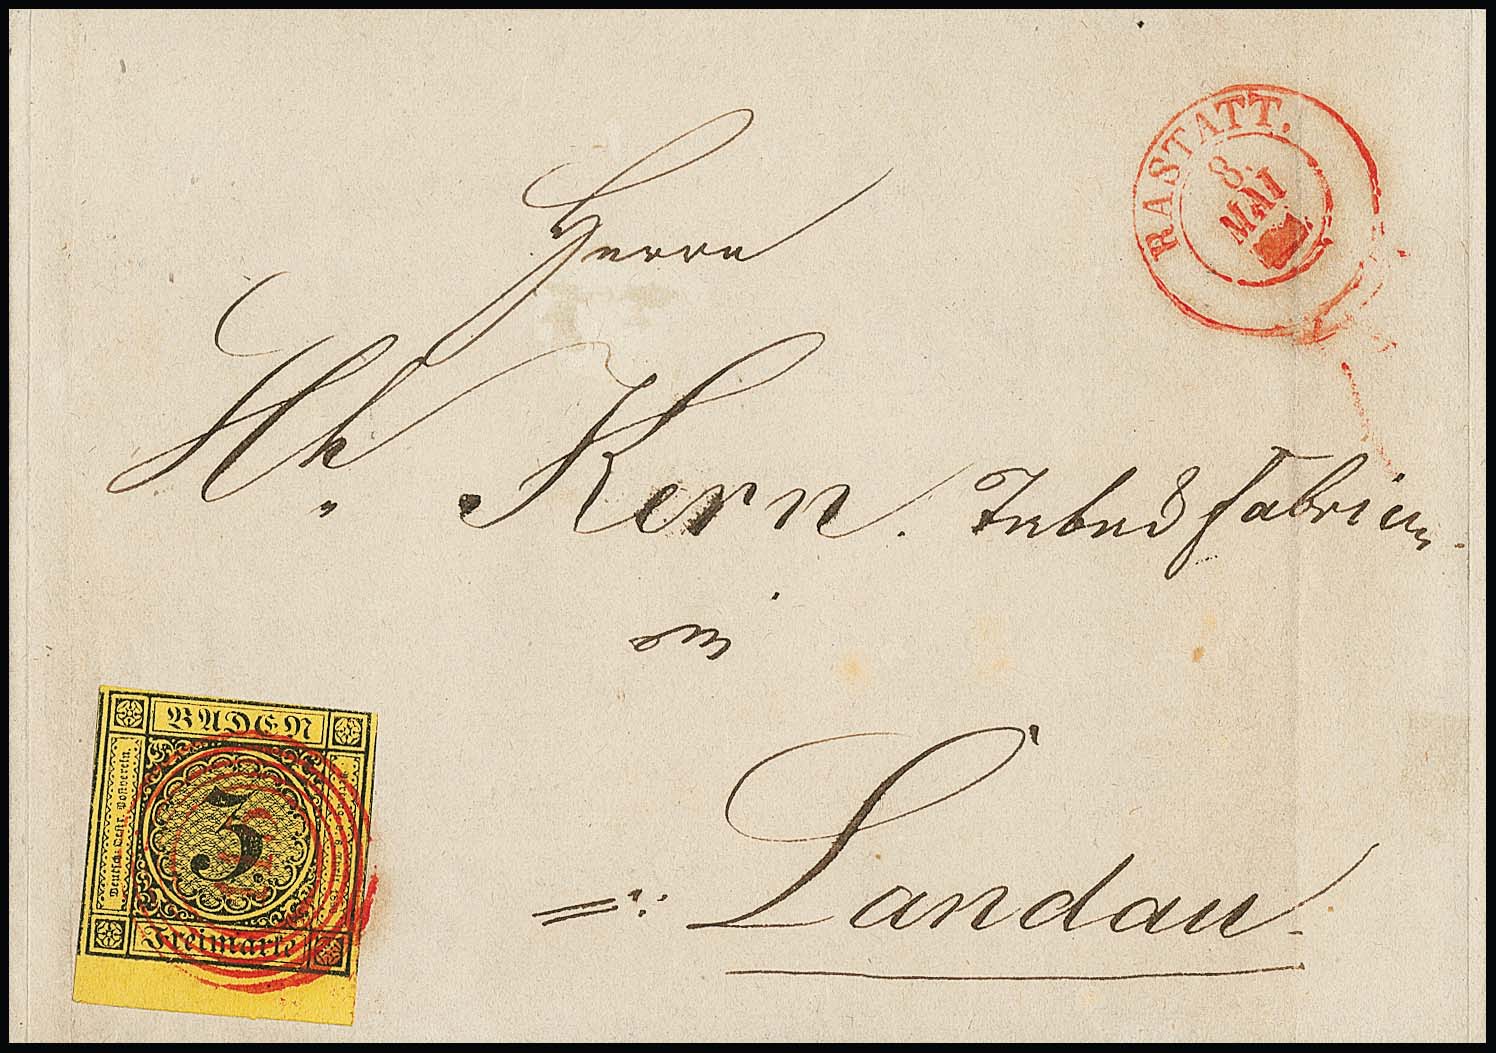 RASTATT.
8.
MAI
Herrn
Hh. Kern.
in
Landau.
BADEN
Deutsch. Oestr. Postverein.
3.
Freimarke